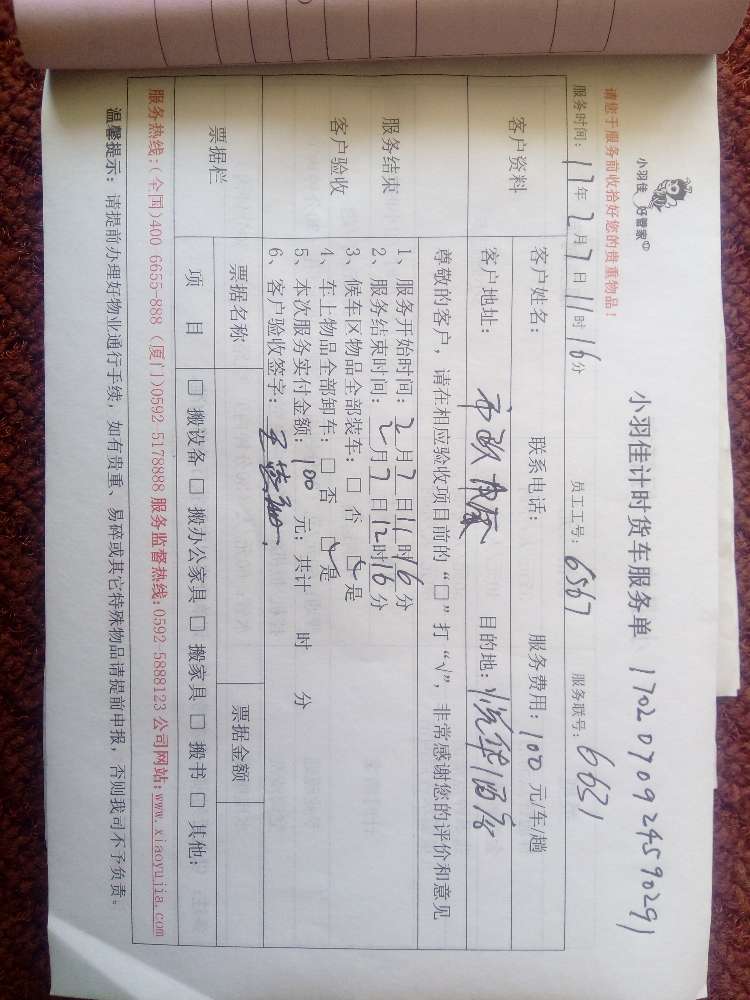 小羽佳 好管家
小羽佳计时货车服务单 1702070924590291
请您于服务前收拾好您的贵重物品！
服务时间：17年2月7日11时16分 员工工号：6567 服务联号：6631
客户资料
客户姓名： 联系电话： 服务费用：100元/车/趟
客户地址：市政 目的地：悦华酒店
服务结束
客户验收
尊敬的客户，请在相应验收项目前的“□”打“√”，非常感谢您的评价和意见
1、服务开始时间：2月7日11时16分
2、服务结束时间：2月7日12时16分
3、候车区物品全部装车：□ 否 ☑ 是
4、车上物品全部卸车：□ 否 ☑ 是
5、本次服务实付金额：100元；共计 时 分
6、客户验收签字：
票据栏
票据名称 票据金额
项 目 □ 搬设备 □ 搬办公家具 □ 搬家具 □ 搬书 □ 其他：
服务热线：(全国)400 6655-888 (厦门)0592 5178888 服务监督热线：0592 5888123 公司网站：www.xiaoyujia.com
温馨提示：请提前办理好物业通行手续，如有贵重、易碎或其它特殊物品请提前申报，否则我司不予负责。